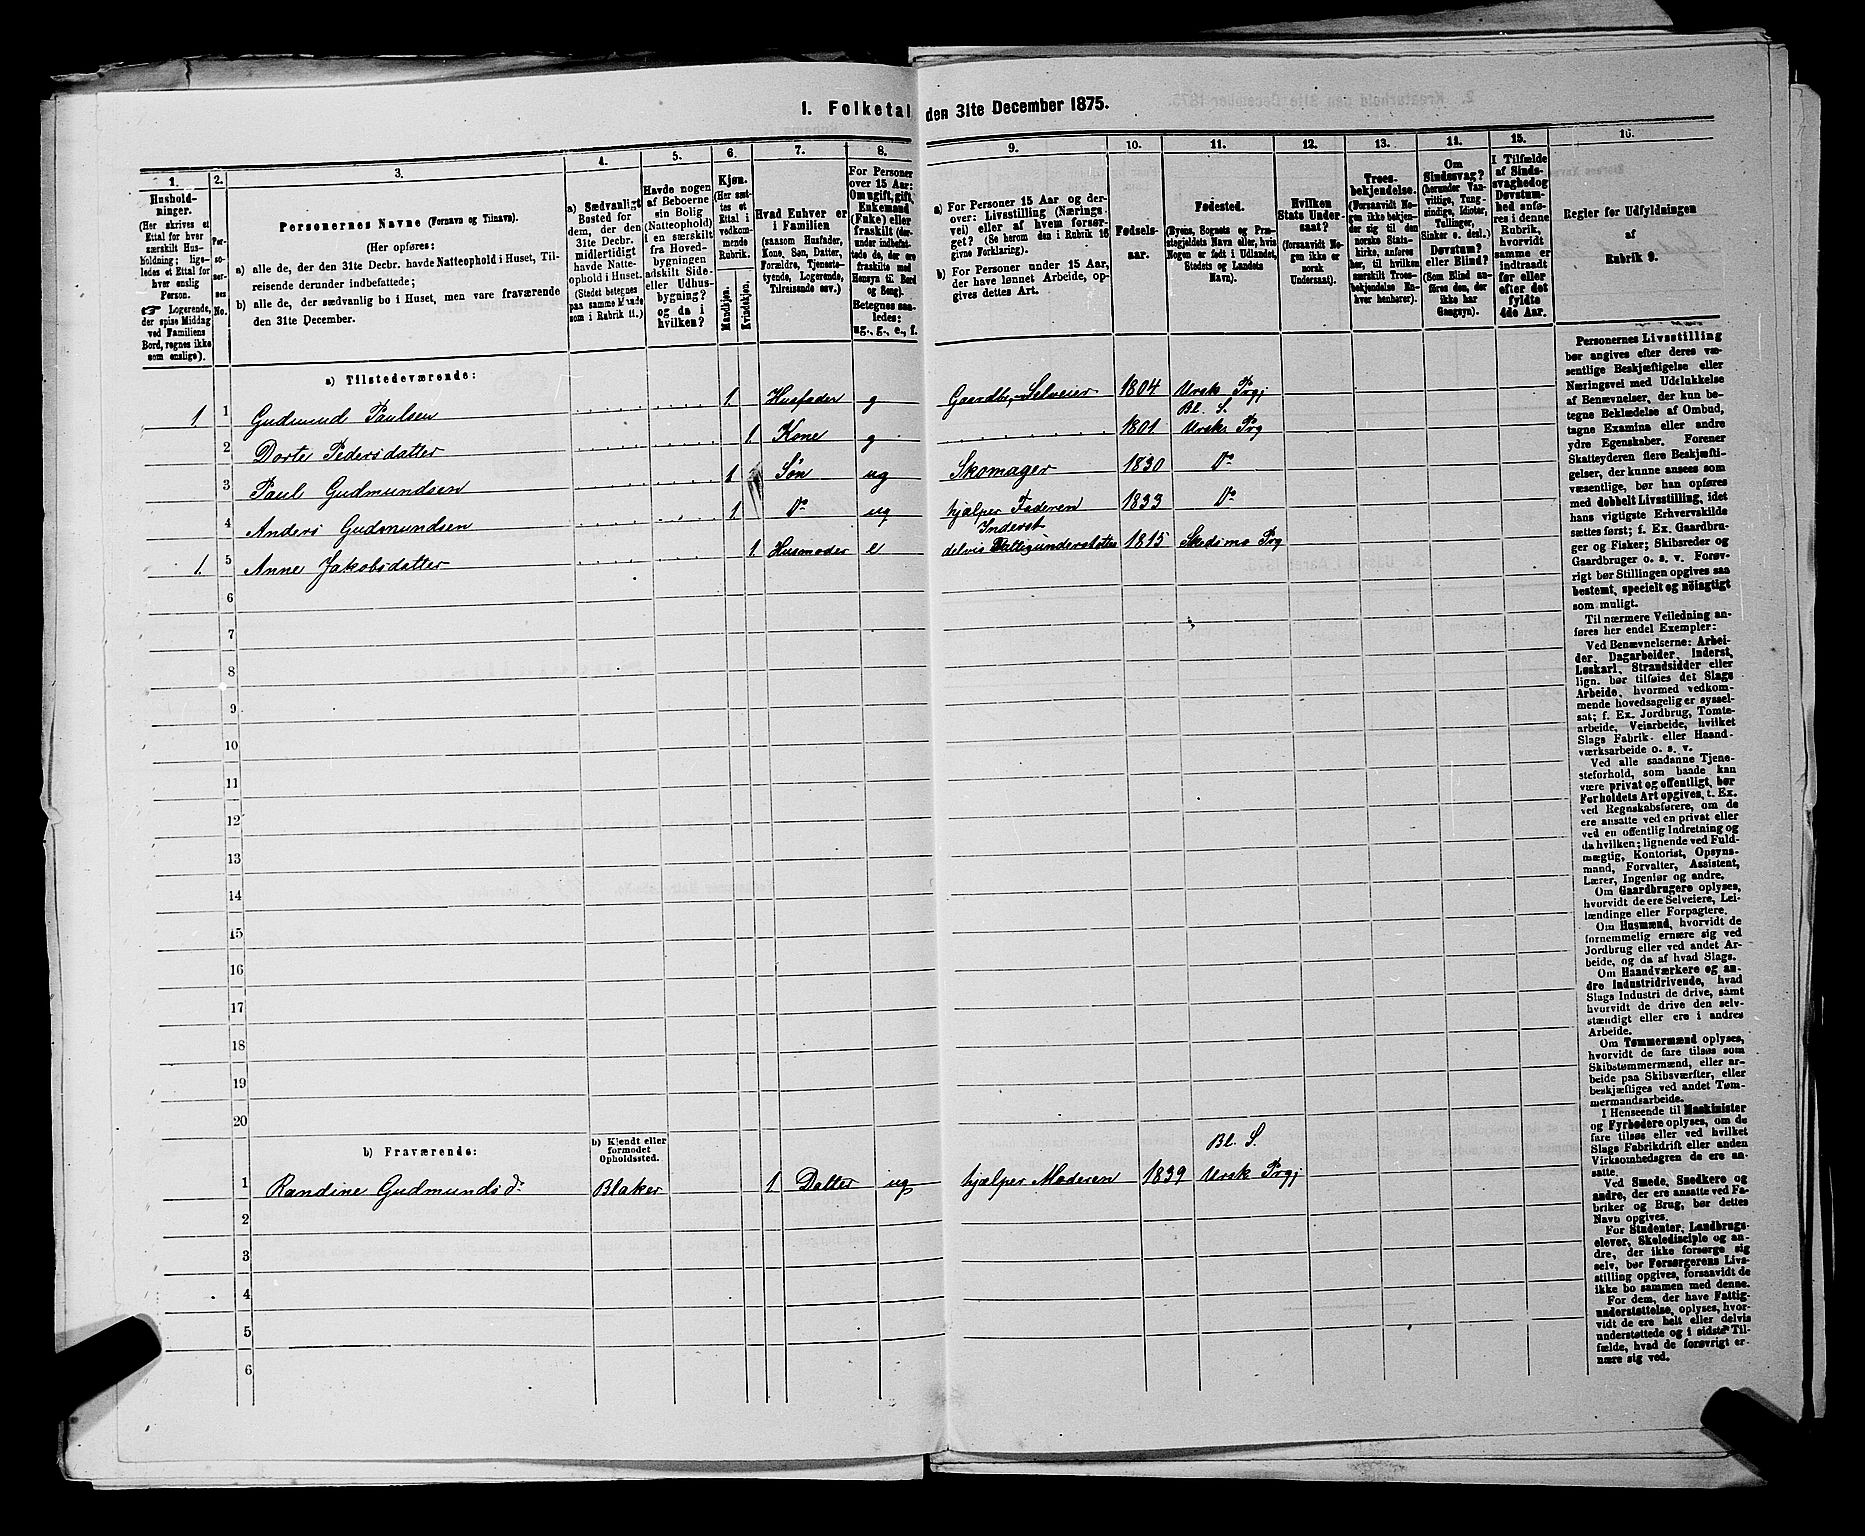 1. Folketal den 31te December 1875.
1.
Hushold-
ninger.
(Her skrives et
Ettal for hver
særskilt Hus-
holdning; lige-
ledes et Ettal for
hver enslig
Person.
☞ Logerende,
der spise Middag
ved Familiens
Bord, regnes ikke
som enslige).
2.
Per-
so-
ner-
nes
No.
3.
Personernes Navne (Fornavn og Tilnavn).
(Her opføres:
a) alle de, der den 31te Decbr. havde Natteophold i Huset, Til-
reisende derunder indbefattede;
b) alle de, der sædvanlig bo i Huset, men vare fraværende
den 31te December.
4.
a) Sædvanligt
Bosted for
dem, der den
31te Decbr.
midlertidigt
havde Natte-
ophold i Huset.
(Stedet betegnes
paa samme Maade
som i Rubrik 11.)
5.
Havde nogen
af Beboerne
sin Bolig
(Natteophold)
i en særskilt
fra Hoved-
bygningen
adskilt Side-
eller Udhus-
bygning?
og da i
hvilken?
6.
Kjøn.
(Her sæt-
tes et
Ettal i
vedkom-
mende
Rubrik.
Mandkjøn.
Kvindekjøn.
7.
Hvad Enhver er
i Familien
(saasom Husfader,
Kone, Søn, Datter,
Forældre, Tjeneste-
tyende, Logerende,
Tilreisende osv.)
8.
For Personer
over 15 Aar:
Om ugift, gift,
Enkemand
(Enke) eller
fraskilt (der-
under indbefat-
tede de, der ere
fraskilte med
Hensyn til Bord
og Seng).
Betegnes saa-
ledes:
ug., g., e., f.
9.
a) For Personer 15 Aar og der-
over: Livsstilling (Nærings-
vei) eller af hvem forsør-
get? (Se herom den i Rubrik 16
givne Forklaring).
b) For Personer under 15 Aar,
der have lønnet Arbeide, op-
gives dettes Art.
10.
Fødsels-
aar.
11.
Fødested.
(Byens, Sognets og Præ-
stegjeldets Navn eller, hvis
Nogen er født i Udlandet,
Stedets og Landets
Navn).
12.
Hvilken
Stats Under-
saat?
(forsaavidt No-
gen ikke er
norsk
Undersaat).
13.
Troes-
bekjendelse.
(Forsaavidt No-
gen ikke bekjen-
der sig til den
norske Stats-
kirke, anføres
her, til hvilken
særskilt Troes-
bekjendelse En-
hver henhører).
14.
Om
Sindssvag?
(herunder Van-
vittige, Tung-
sindige, Idioter,
Tullinger,
Sinker o. desl.)
Døvstum?
eller Blind?
(Som Blind an-
føres den, der
ikke har
Gangsyn).
15.
I Tilfælde
af Sinds-
svaghed og
Døvstum-
hed anfø-
res i denne
Rubrik,
hvorvidt
samme er
indtraadt
før eller
efter det
fyldte
4de Aar.
16.
Regler for Udfyldningen
af
Rubrik 9.
a) Tilstedeværende:
1 1 Gudmund Paulsen 1. Husfader g Gaardbr, Selveier 1804 Ursk Prgj
Bl. S.
2 Dorte Pedersdatter 1. Kone g 1801 Ursk Prg
3 Paul Gudmundsen 1 Søn ug Skomager 1830 Do
4 Anders Gudmundsen 1. Do ug hjælper Faderen 1833 Do
Inderst
1. 5 Anne Jakobsdatter 1. Husmoder e delvis Fattigunderstøttes 1815 Skedsmo Prg
6
7
8
9
10
11
12
13
14
15
16
17
18
19
20
b) Fraværende:
b) Kjendt eller
formodet
Opholdssted.
Bl. S.
1 Randine Gudmundsd. Blaker 1 Datter ug hjælper Moderen 1839 Ursk Prgj
2
3
4
5
6
Personernes Livsstilling
bør angives efter deres væ-
sentlige Beskjæftigelse eller
Næringsvei med Udelukkelse
af Benævnelser, der kun be-
tegne Beklædelse af Ombud,
tagne Examina eller andre
ydre Egenskaber. Forener
Skatteyderen flere Beskjæfti-
gelser, der kunne ansees som
væsentlige, bør han opføres
med dobbelt Livsstilling, idet
hans vigtigste Erhvervskilde
sættes først; f. Ex. Gaardbru-
ger og Fisker; Skibsreder og
Gaardbruger o. s. v. Forøv-
rigt bør Stillingen opgives saa
bestemt, specielt og nöiagtigt
som muligt.
Til nærmere Veiledning an-
føres her endel Exempler:
Ved Benævnelserne: Arbei-
der, Dagarbeider, Inderst,
Løskarl, Strandsidder eller
lign. bør tilføies det Slags
Arbeide, hvormed vedkom-
mende hovedsagelig er syssel-
sat; f. Ex. Jordbrug, Tomte-
arbeide, Veiarbeide, hvilket
Slags Fabrik- eller Haand-
værksarbeide o. s. v.
Ved alle saadanne Tjene-
steforhold, som baade kan
være privat og offentligt, bør
Forholdets Art opgives, t. Ex.
ved Regnskabsførere, om de
ere ansatte ved en privat eller
ved en offentlig Indretning og
da hvilken; lignende ved Fuld-
mægtig, Kontorist, Opsyns-
mand, Forvalter, Assistent,
Lærer, Ingeniør og andre.
Om Gaardbrugere oplyses,
hvorvidt de ere Selveiere, Lei-
lændinge eller Forpagtere.
Om Husmænd, hvorvidt de
fornemmelig ernære sig ved
Jordbrug eller ved andet Ar-
beide, og da af hvad Slags.
Om Haandværkere og an-
dre Industridrivende, hvad
Slags Industri de drive, samt
hvorvidt de drive den selv-
stændigt eller ere i andres
Arbeide.
Om Tømmermænd oplyses,
hvorvidt de fare tilsøs som
Skibstømmermænd, eller ar-
beide paa Skibsværfter, eller
beskjæftiges ved andet Tøm-
mermandsarbeide.
I Henseende til Maskinister
og Fyrbødere oplyses, om de
fare tilsøs eller ved hvilket
Slags Fabrikdrift eller anden
Virksomhedsgren de ere an-
satte.
Ved Smede, Snedkere og
andre, der ere ansatte ved Fa-
briker og Brug, bør dettes
Navn opgives.
For Studenter, Landbrugs-
elever, Skoledisciple og an-
dre, der ikke forsørge sig
selv, bør Forsørgerens Livs-
stilling opgives, forsaavidt de
ikke bo sammen med denne.
For dem, der have Fattig-
understøttelse, oplyses, hvor-
vidt de ere helt eller delvis
understøttede og i sidste Til-
fælde, hvad de forøvrigt er-
nære sig ved.